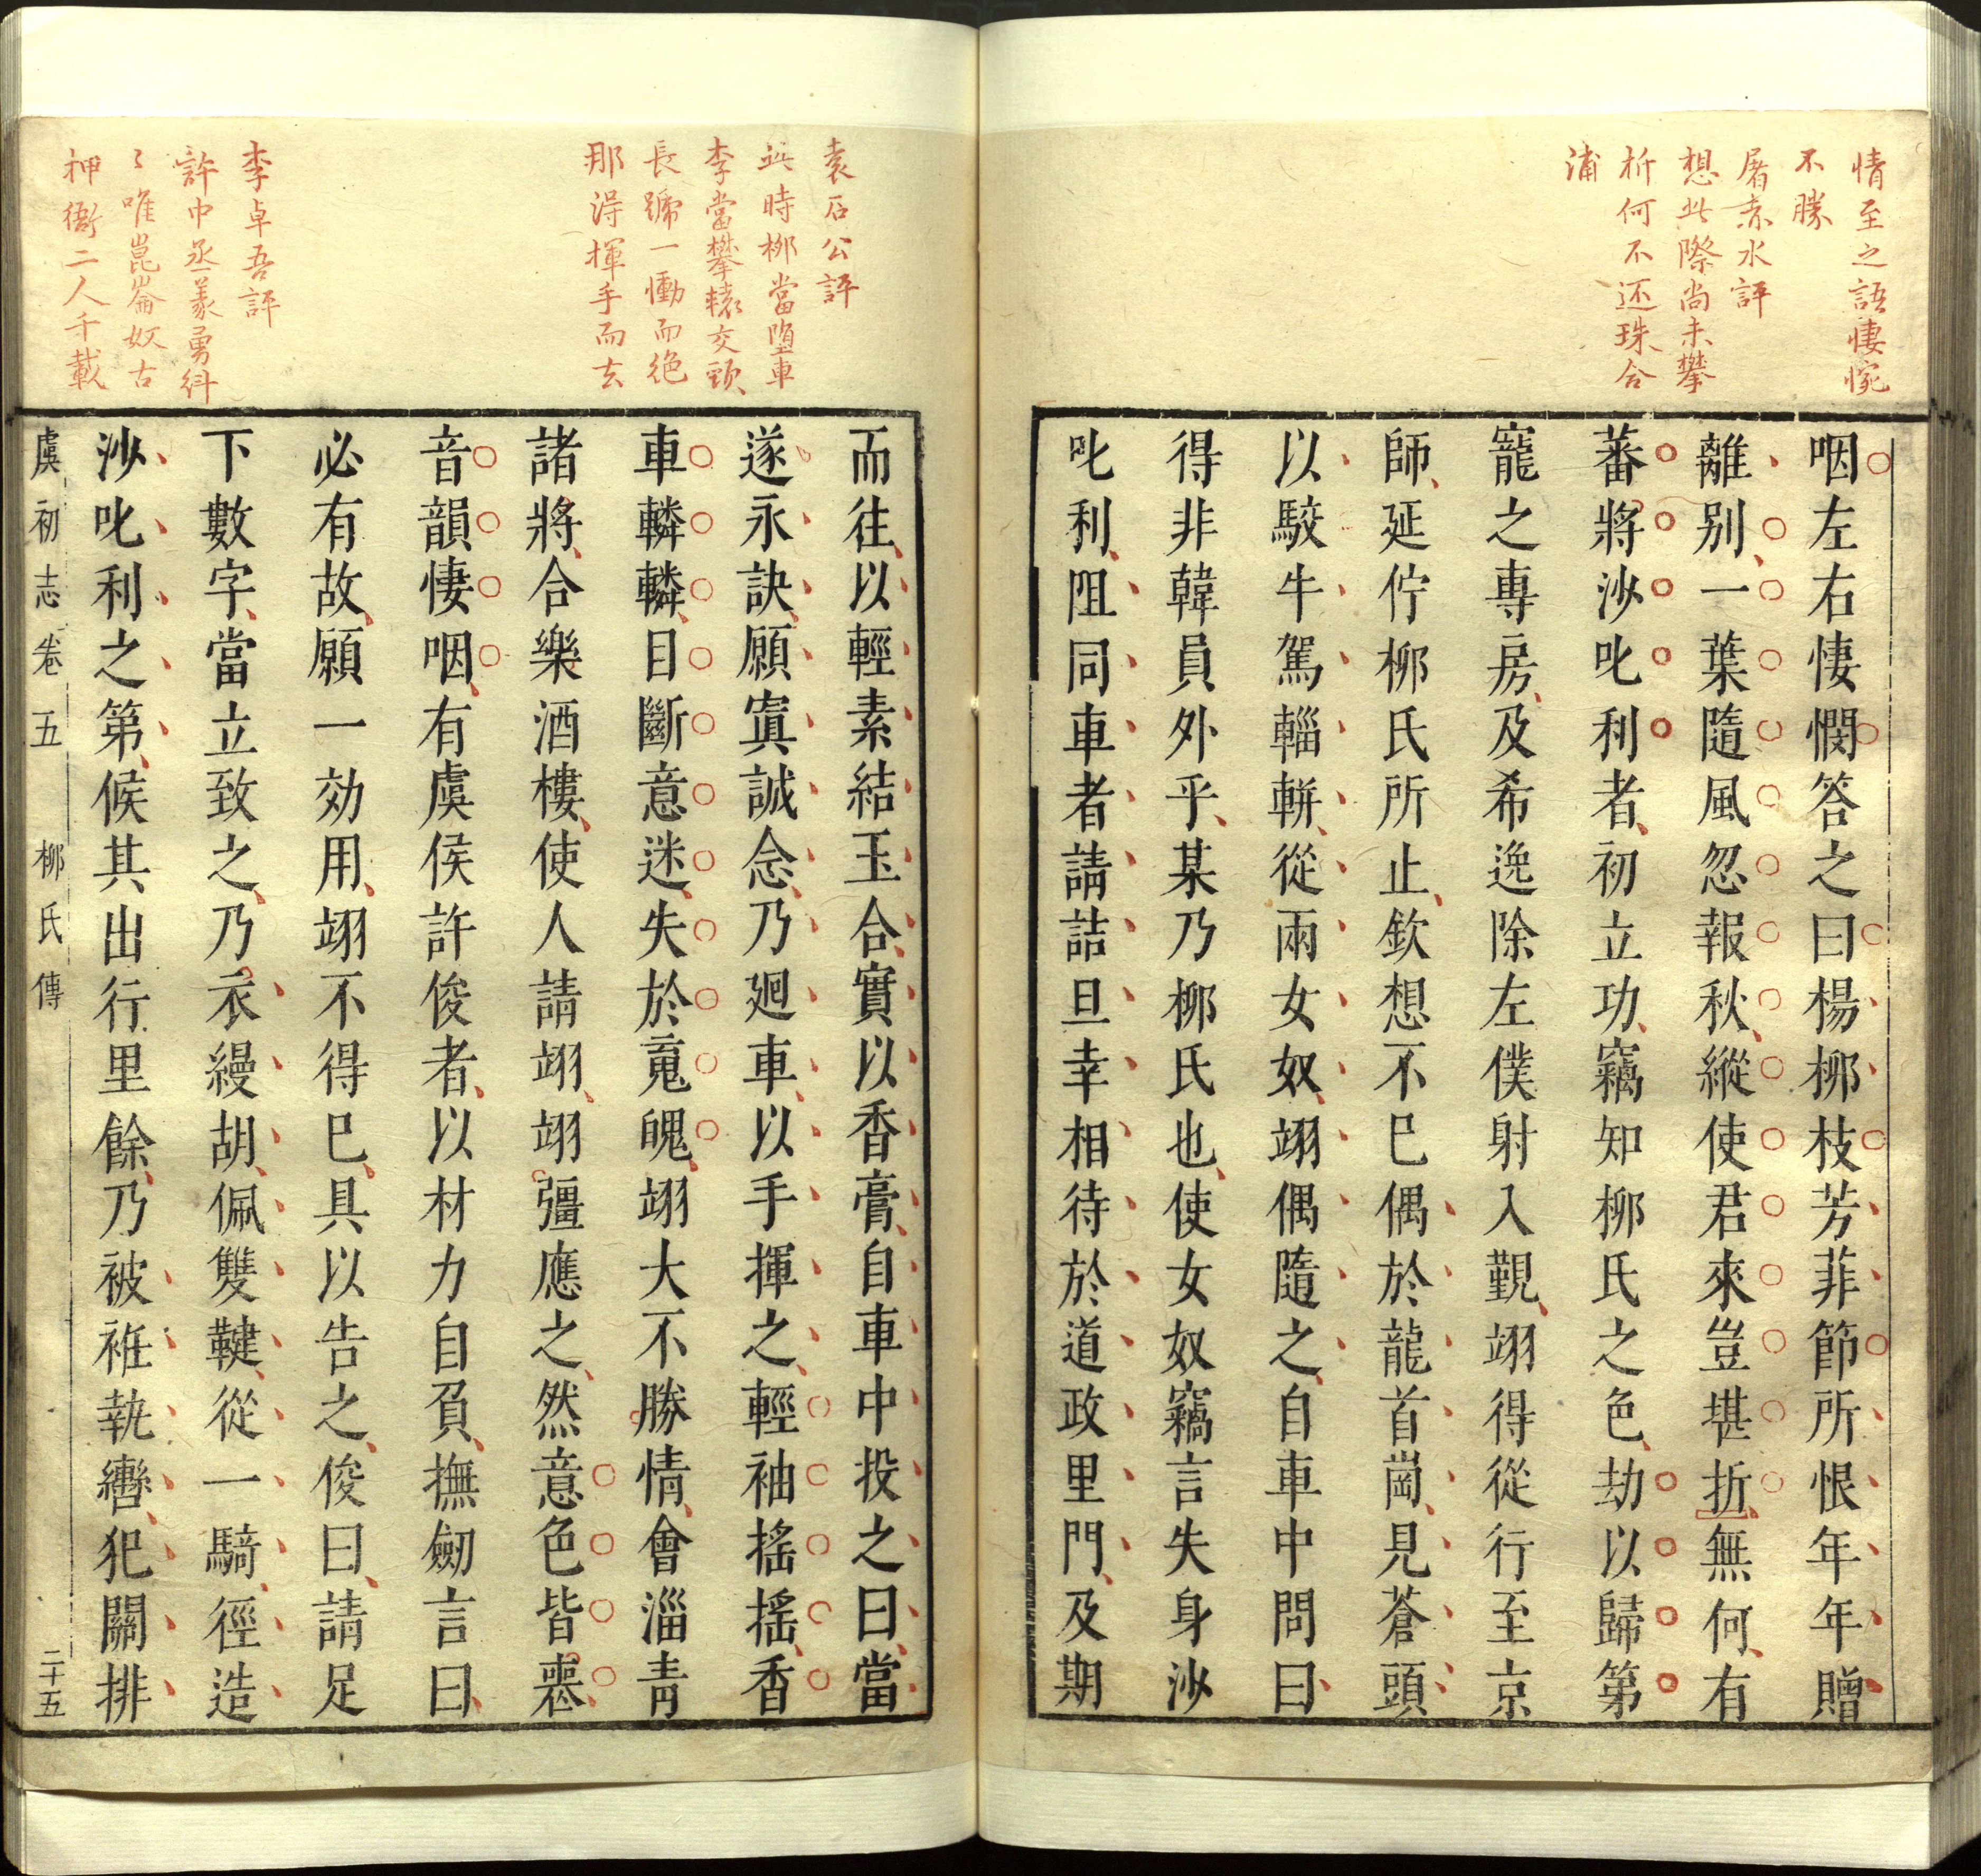 情至之語悽惋
不勝
屠赤水評
想此際尚未攀
折何不还珠合
浦
咽左右悽憫答之曰楊柳枝芳菲節所恨年年贈
離别一葉隨風忽報秋縱使君來豈堪折無何有
蕃將沙叱利者初立功竊知柳氏之色劫以歸第
寵之專房及希逸除左僕射入覲翊得從行至京
師延佇柳氏所止欽想不已偶於龍首崗見蒼頭
以駮牛駕輜軿從兩女奴翊偶隨之自車中問曰
得非韓員外乎某乃柳氏也使女奴竊言失身沙
叱利阻同車者請詰旦幸相待於道政里門及期
袁石公評
此時柳當墮車
李當攀轅交頸
長號一慟而絶
那淂揮手而去
李卓吾評
許中丞義勇糾
糾唯崑崙奴古
押衙二人千載
而往以輕素結玉合實以香膏自車中投之曰當
遂永訣願寘誠念乃廻車以手揮之輕袖摇摇香
車轔轔目斷意迷失於䰟魄翊大不勝情會淄青
諸將合樂酒樓使人請翊翊彊應之然意色皆喪
音韻悽咽有虞侯許俊者以材力自負撫劒言曰
必有故願一効用翊不得已具以告之俊曰請足
下數字當立致之乃衣縵胡佩雙鞬從一騎徑造
沙叱利之第候其出行里餘乃被袵執轡犯關排
虞初志卷五 柳氏傳 二十五